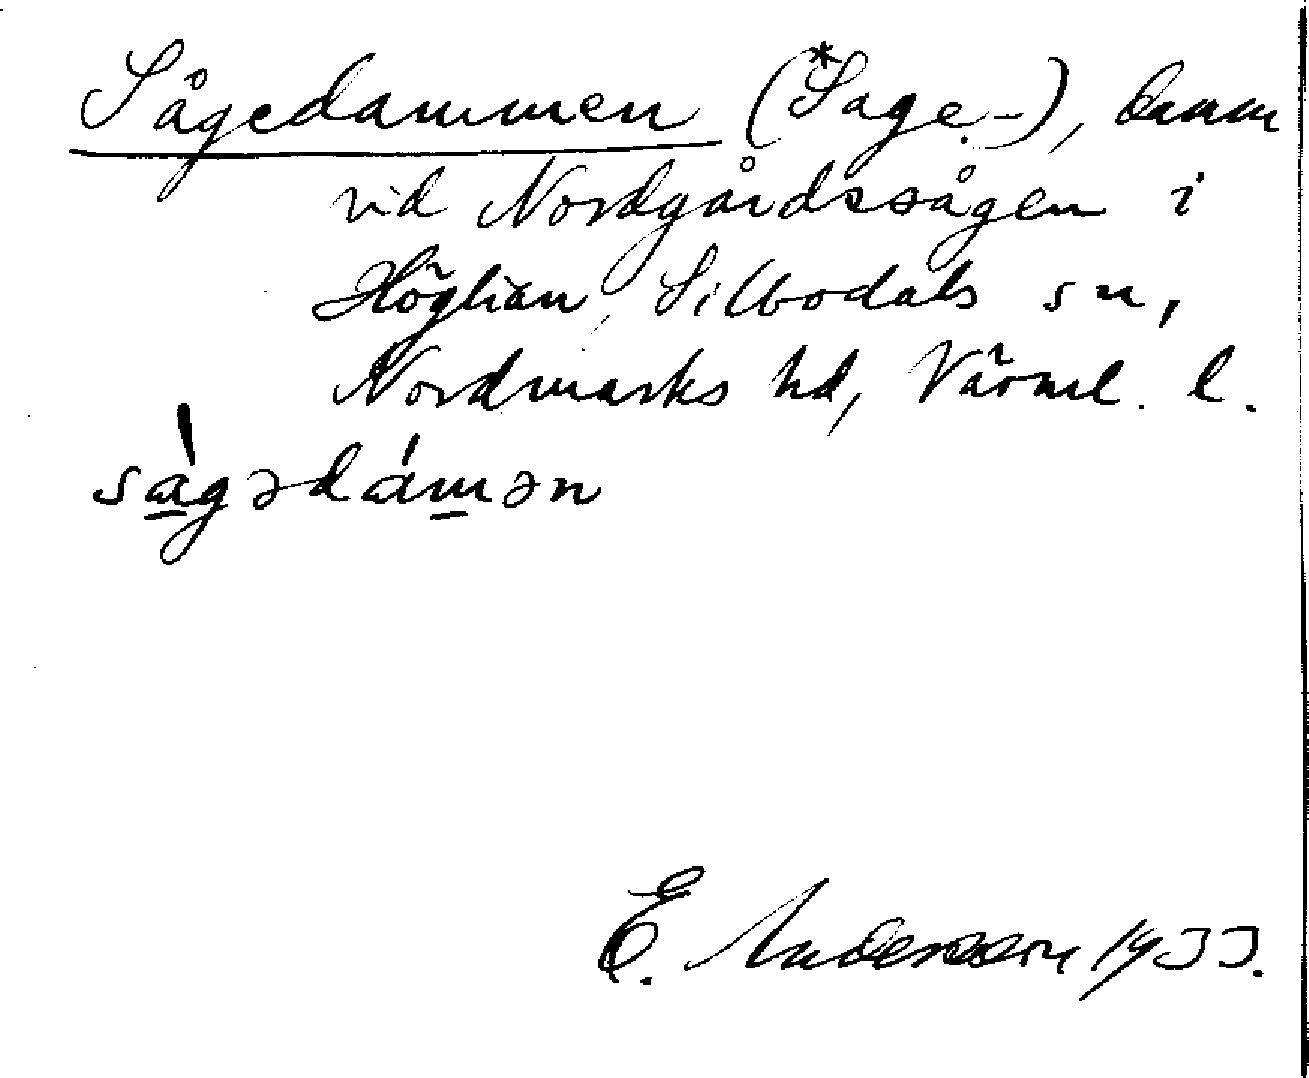 Sågedammen (*Sage-), damm
vid Nordgårdssågen i
Höglian, Silbodals sn,
Nordmarks hd, Värml. l.
sa̲gədám̲ən
E. Andersson 1933.